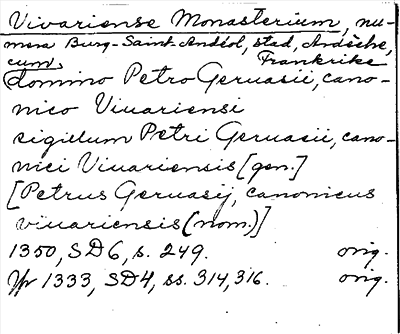 Vivariense Monasterium, nu-
mera Burg-Saint Andéol, stad, Ardèche,
cum, Frankrike
domino Petro Geruasii, cano-
nico Viuariensi
sigillum Petri Geruasii, cano-
nici Viuariensis [gen.]
[Petrus Geruasij, canonicus
viuariensis (nom.)]
1350, SD6, s. 249. orig.
Jfr 1333, SD4, ss. 314, 316. orig.